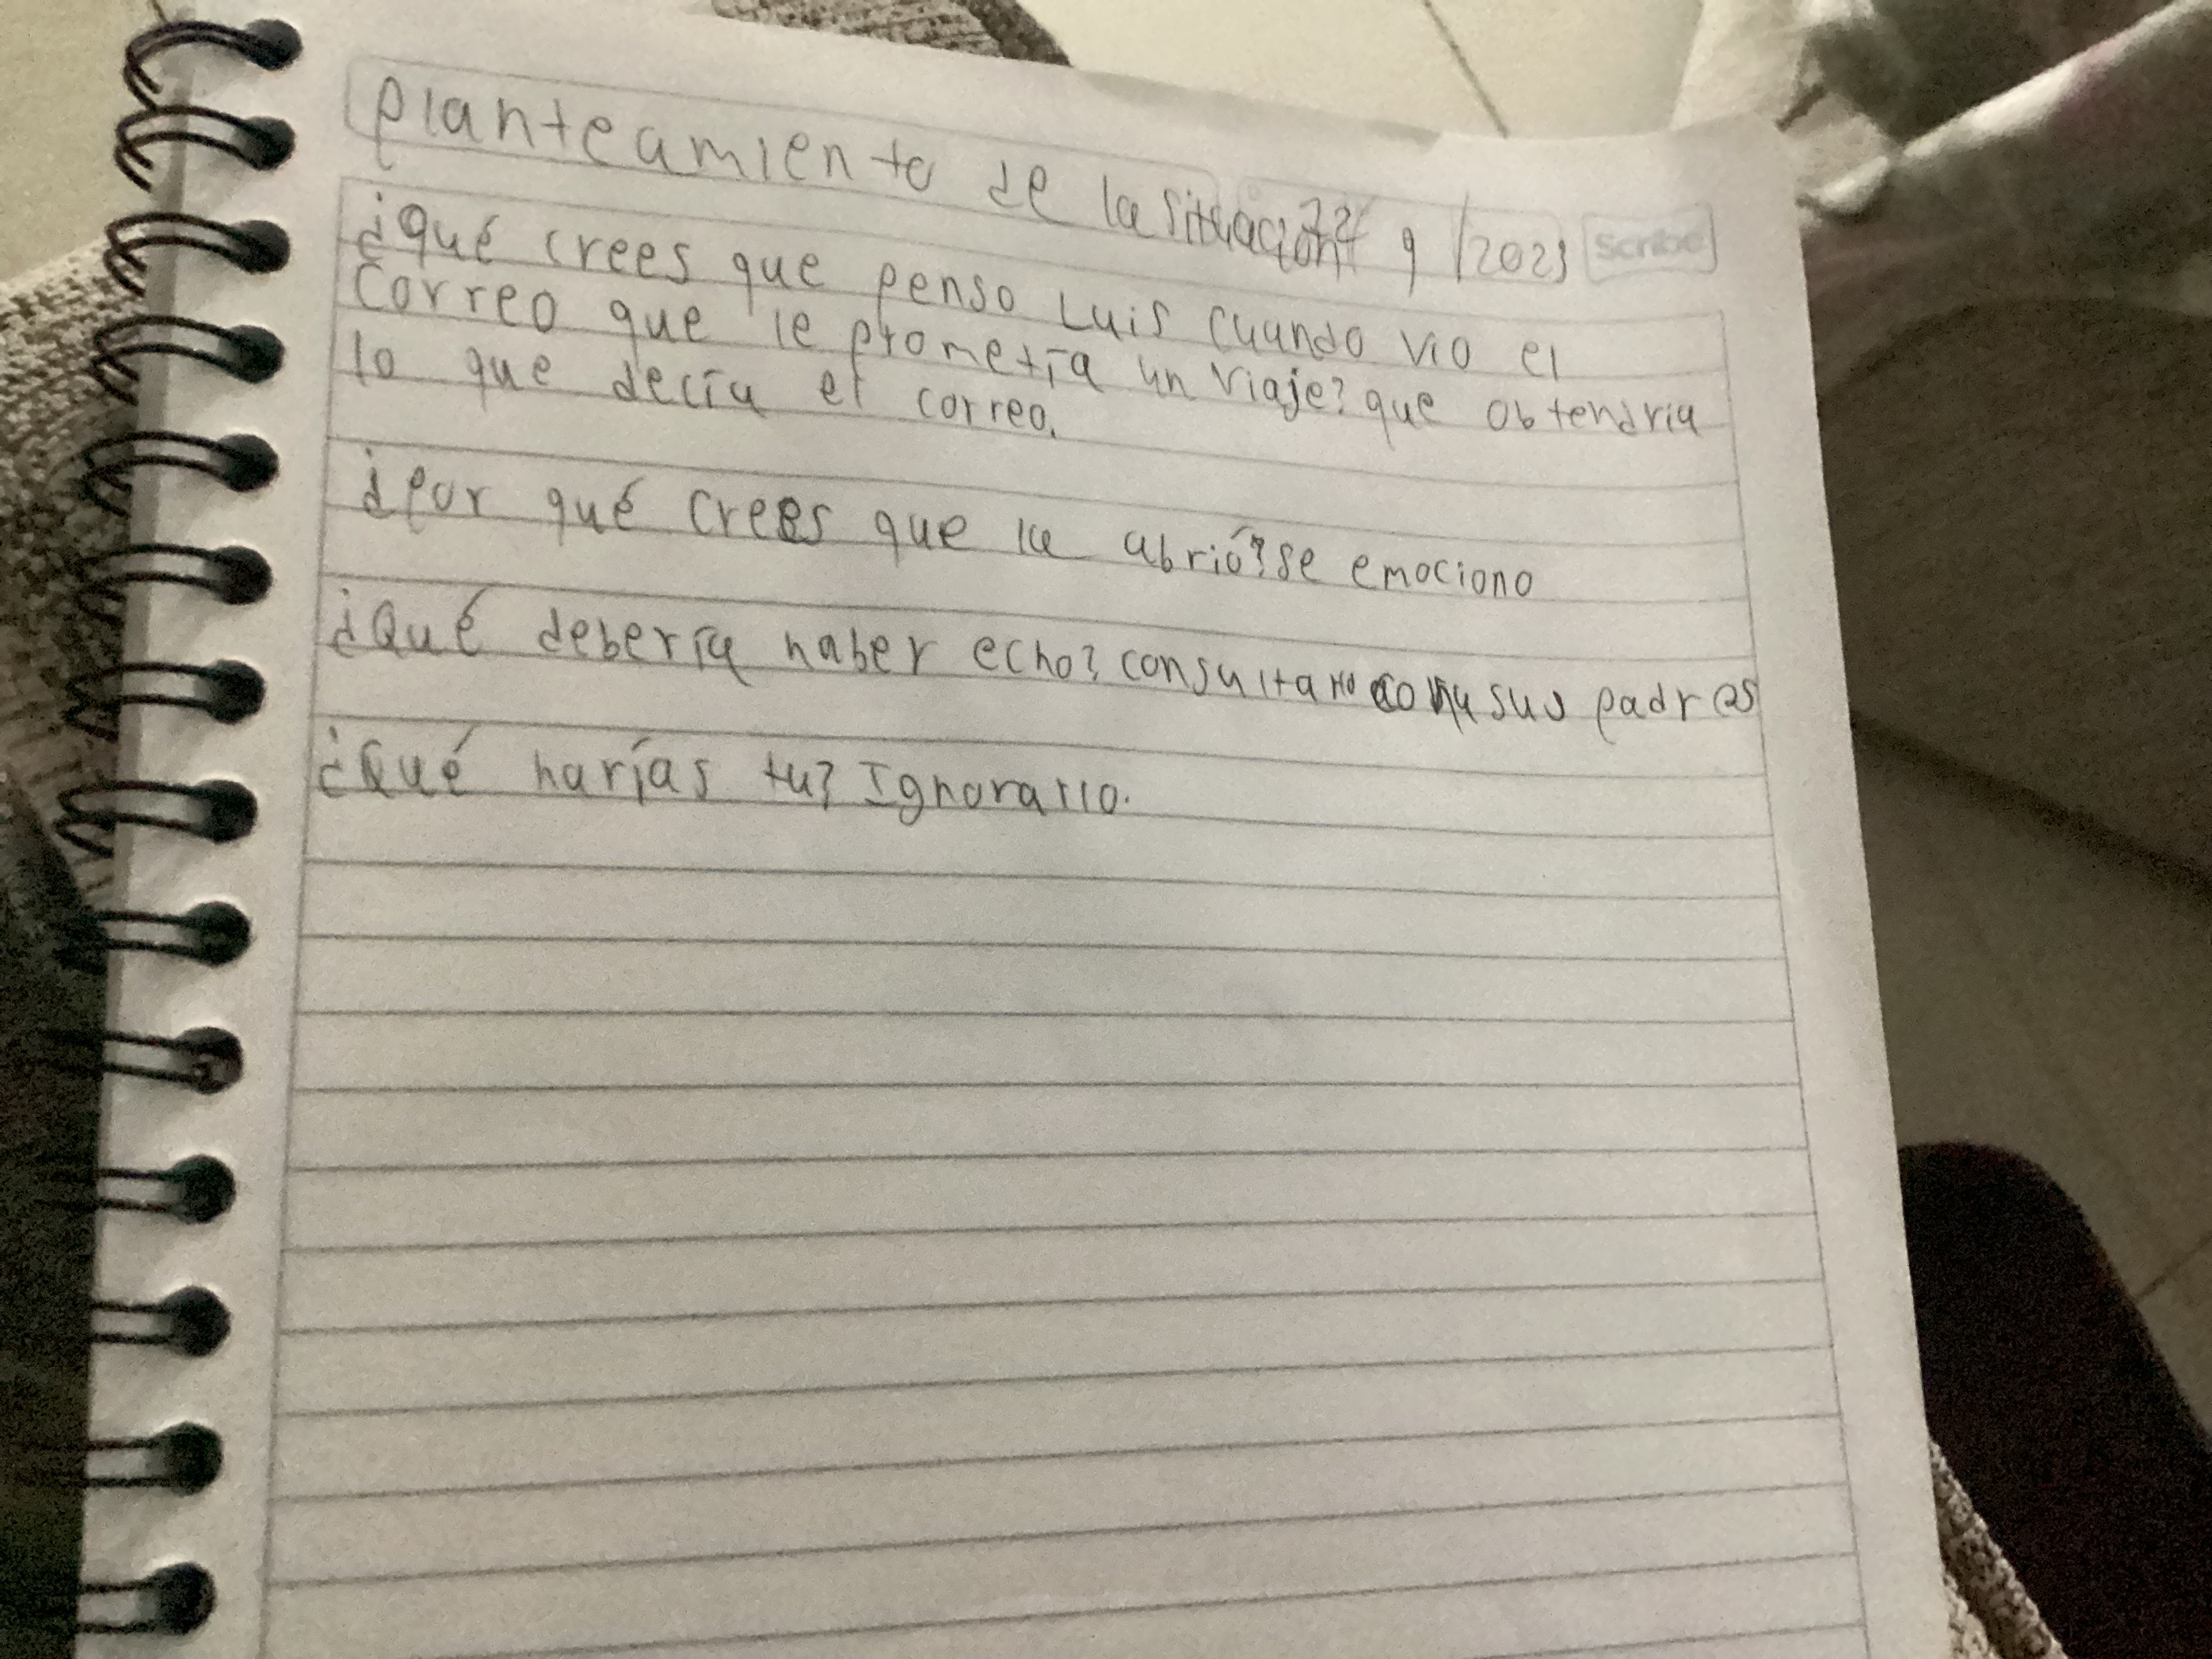 planteamiento de la situación 9 /2023 Scribe
¿Qué crees que penso Luis cuando vio el
correo que le prometía un viaje? que obtendria
lo que decía el correo.
¿por qué crees que la abrió? se emociono
¿Qué debería haber echo? consultarlo sus padres
¿Qué harías tu? Ignorarlo.